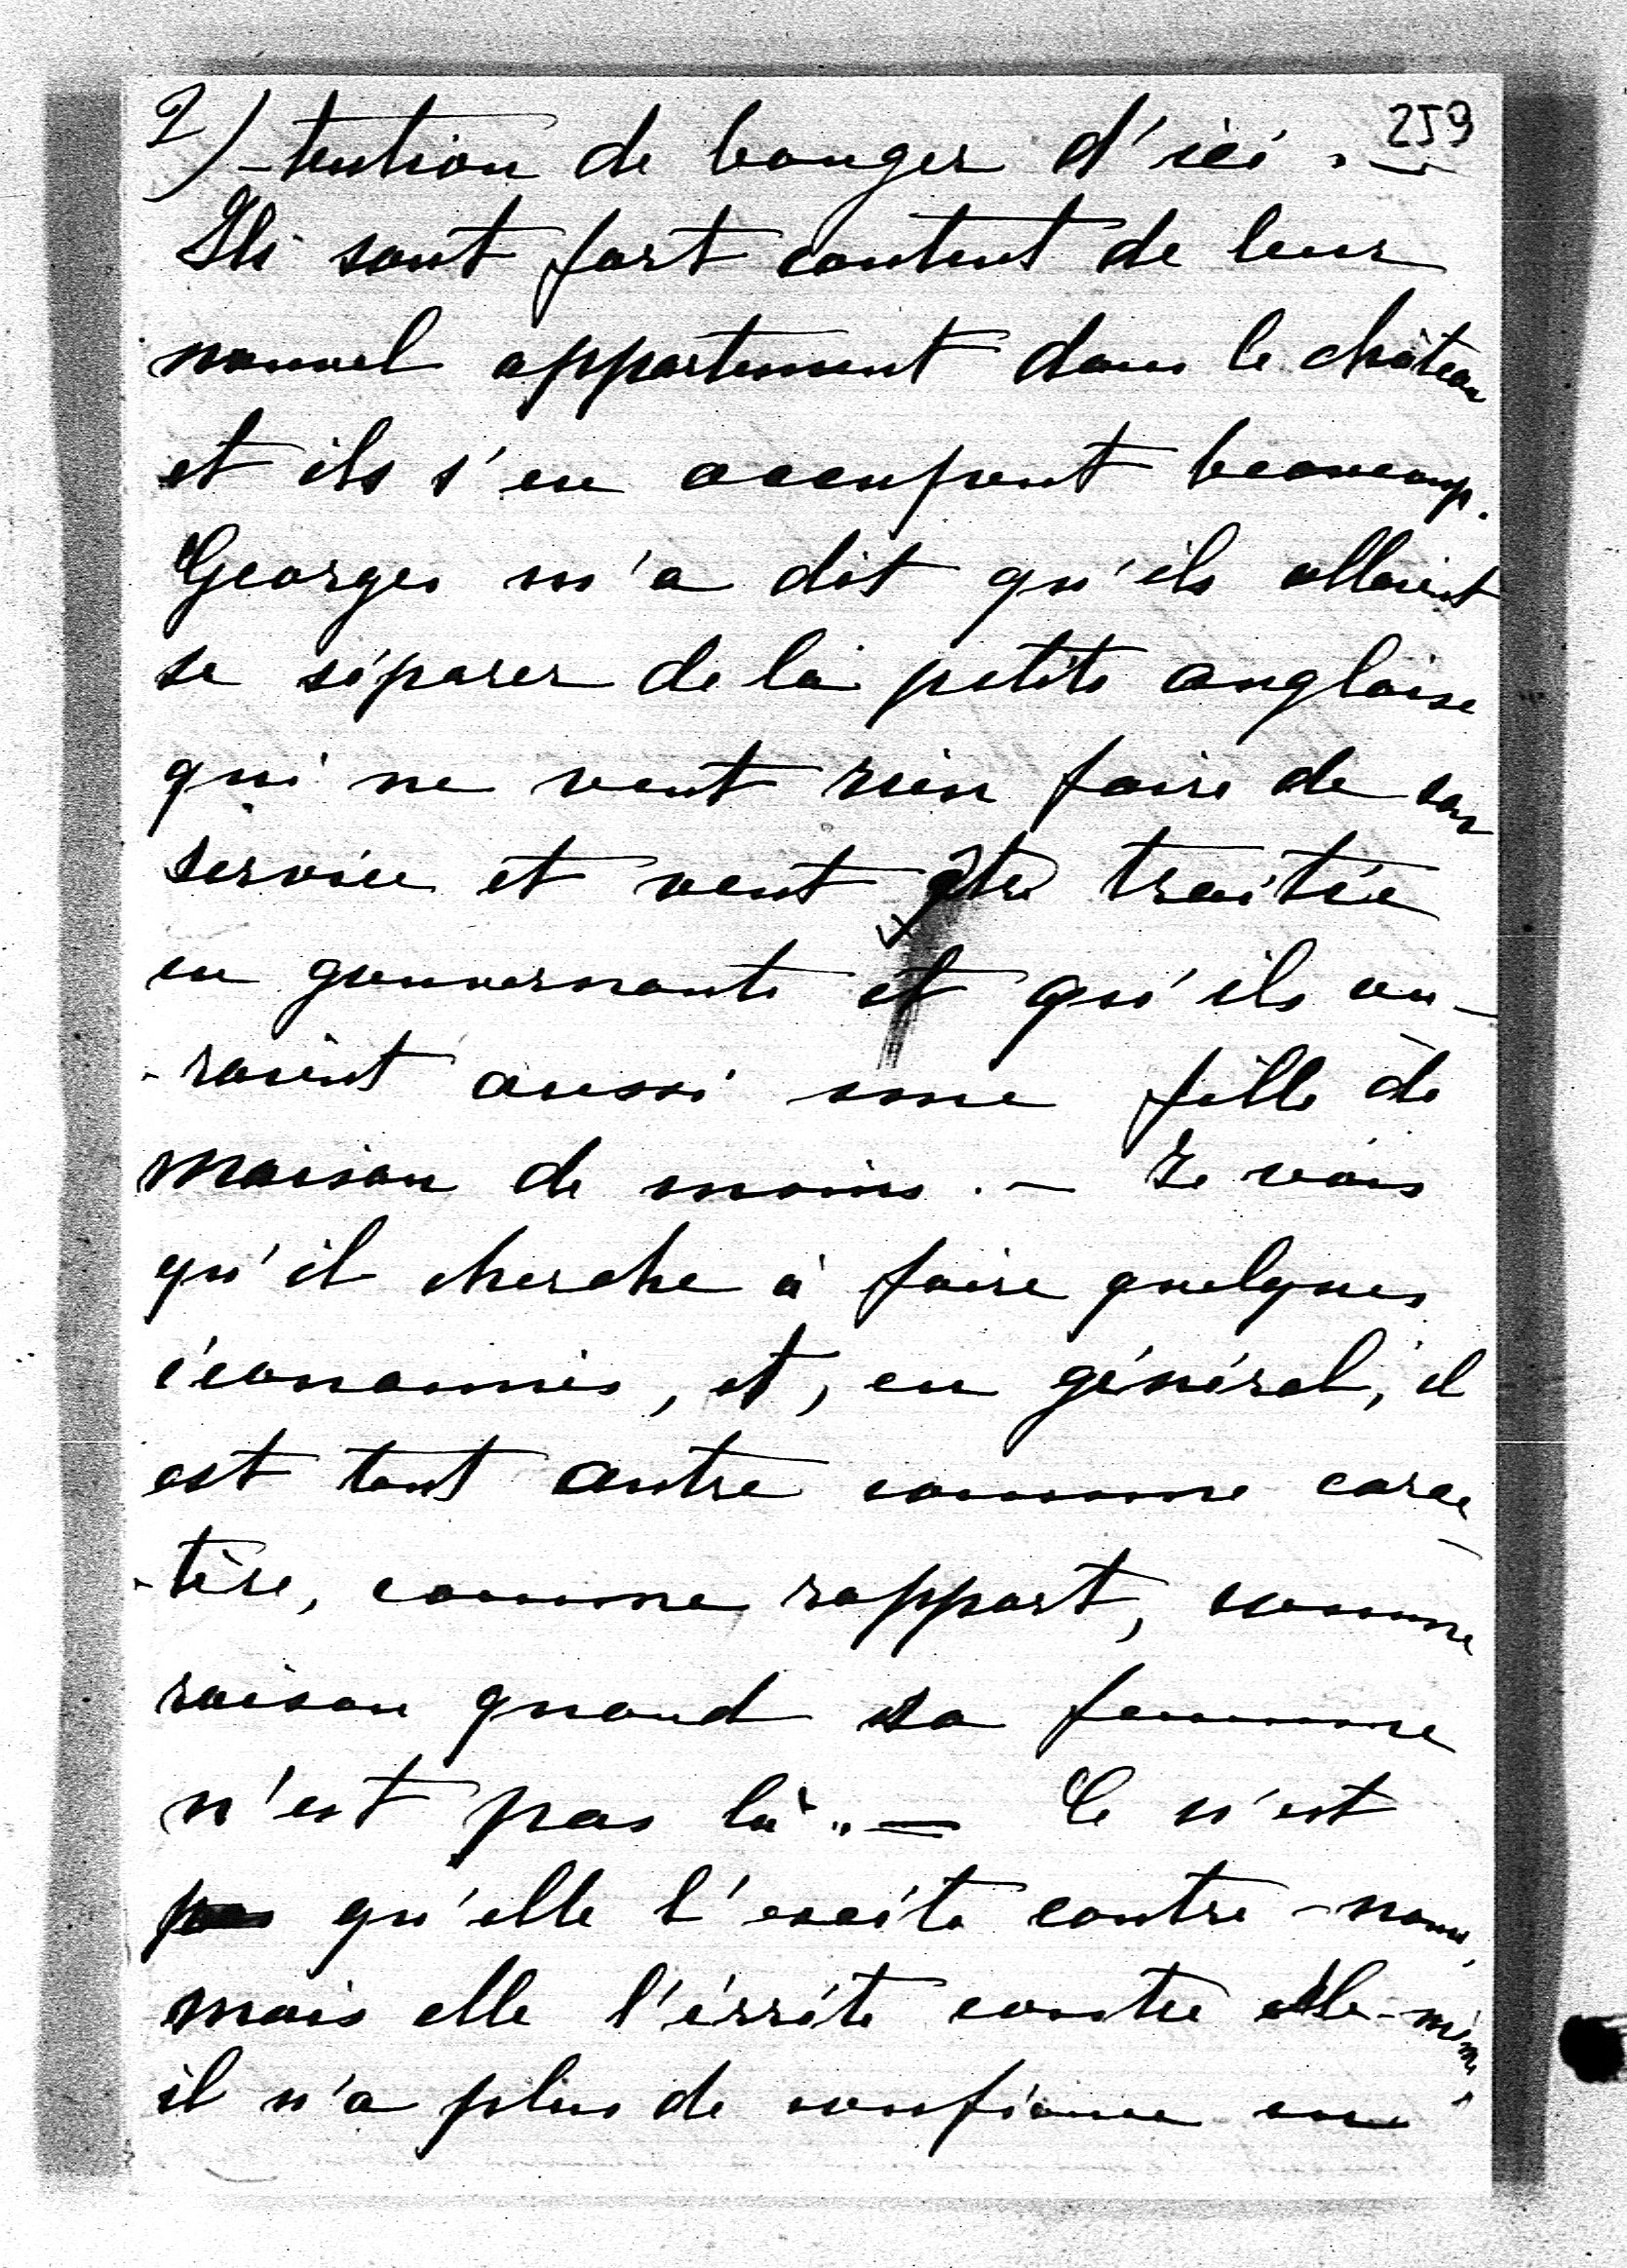 2) 259
-tention de bouger d'ici. —
Ils sont fort content de leur
nouvel appartement dans le château
et ils s'en occupent beaucoup.
Georges m'a dit qu'ils allaient
se séparer de la petite anglaise
qui ne veut rien faire de son
service et veut être traitée
en gouvernante et qu'ils au-
-raient aussi une fille de
maison de moins. — Je vois
qu'il cherche à faire quelques
économies, et, en général, il
est tout autre comme carac-
-tère, comme rapport, comme
raison quand sa femme
n'est pas là. — Ce n'est
pas qu'elle l'excite contre-nous,
mais elle l'irrite contre elle-même,
il n'a plus de confiance en